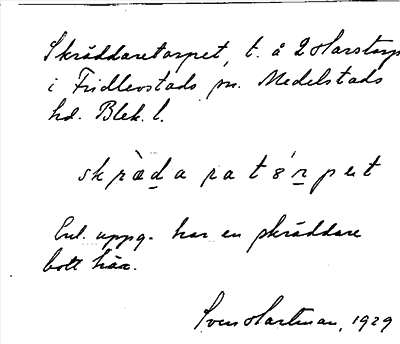 Skräddaretorpet, t. å 2 Harstorp
i Fridlevstads sn. Medelstads
hd. Blek. l.
skrä̀da ratórpet
Enl. uppg. har en skräddare
bott här.
Sven Hartman, 1929